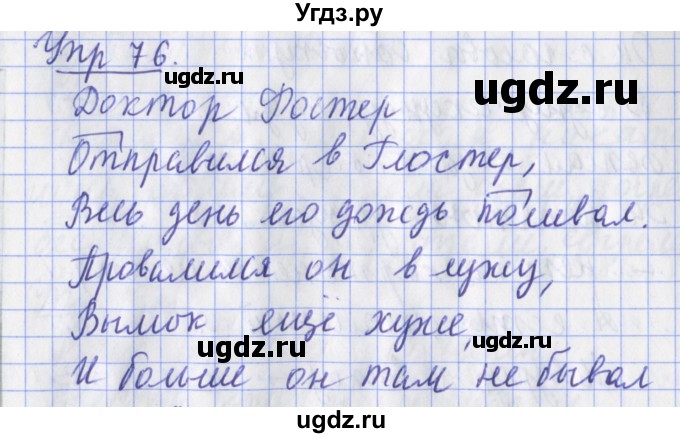 Угдз.ру
Упр 76.
ugdz.ru
ugdz.ru
Доктор Фостер
Отправился в Глостер,
ugdz.ru
Весь день его дождь поливал.
ugdz.ru
Провалился он в лужу,
ugdz.ru
Вымок ещё хуже,
ugdz.ru
И больше он там не бывал
ugdz.ru